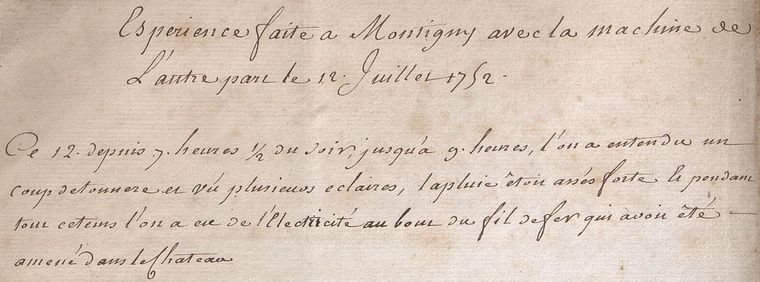 Experience faite a Montigny avec la machine de
L'autre part le 12. Juillet 1752.
Ce 12. depuis 7. heures 1/2 du soir, jusqu'a 9. heures, l'on a entendu un
coup de tonnere et vû plusieurs eclaires, la pluie étoit assés forte et pendant
tout ce tems l'on a eu de l'Electricité au bout du fil de fer qui avoit été
amené dans le Chateau